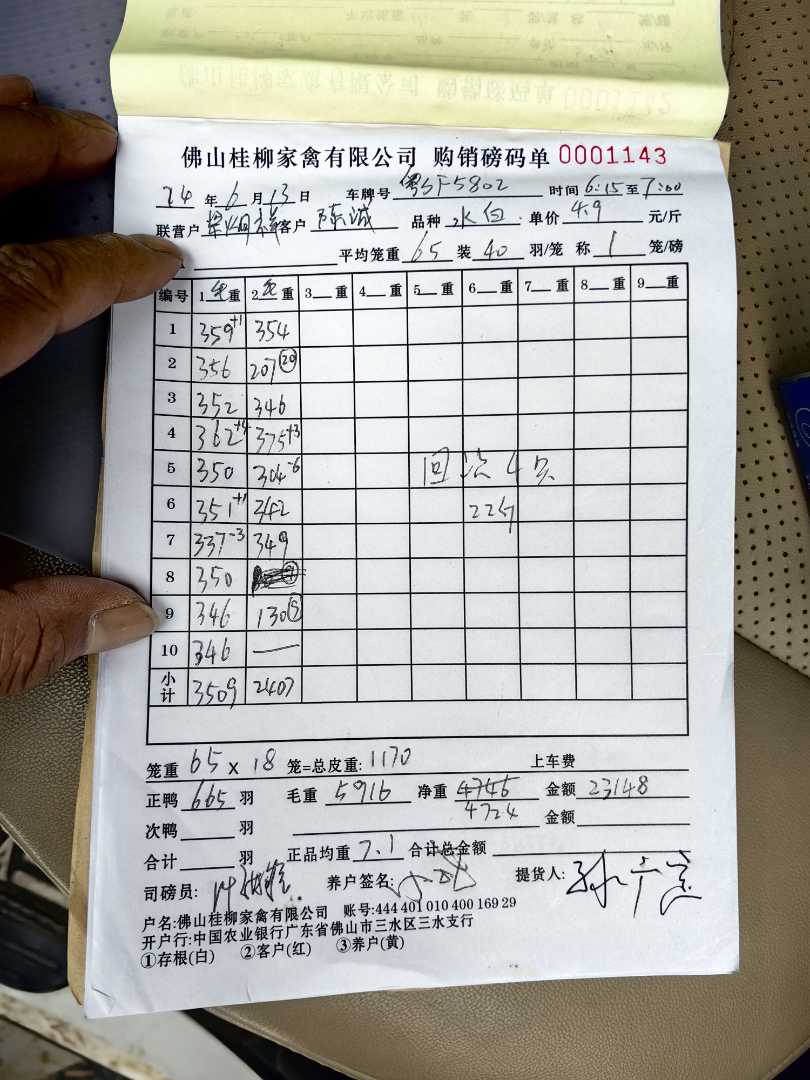 佛山桂柳家禽有限公司 购销磅码单 0001143
24 年 6 月 13 日 车牌号 粤SF5802 时间 6:15 至 7:00
联营户 客户 陈诚 品种 水白 单价 4.9 元/斤
平均笼重 65 装 40 羽/笼 称 1 笼/磅
编号 1 毛 重 2 毛 重 3 重 4 重 5 重 6 重 7 重 8 重 9 重
1 359+1 354
2 356 207 20
3 352 346
4 362+4 375+3
5 350 304-6 回 4只
6 351+1 342 22斤
7 337-3 349
8 350
9 346 130
10 346 —
小计 3509 2407
笼重 65 x 18 笼=总皮重: 1170 上车费
正鸭 665 羽 毛重 5916 净重 4746 金额 23148
4724
次鸭 羽 金额
合计 羽 正品均重 7.1 合计总金额
司磅员: 养户签名: 提货人:
户名:佛山桂柳家禽有限公司 账号:444 401 010 400 169 29
开户行:中国农业银行广东省佛山市三水区三水支行
①存根(白) ②客户(红) ③养户(黄)